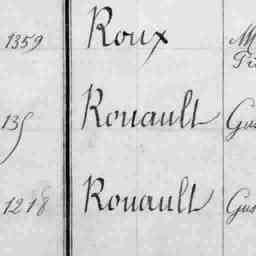 1359 Roux
135 Rouault
1218 Rouault